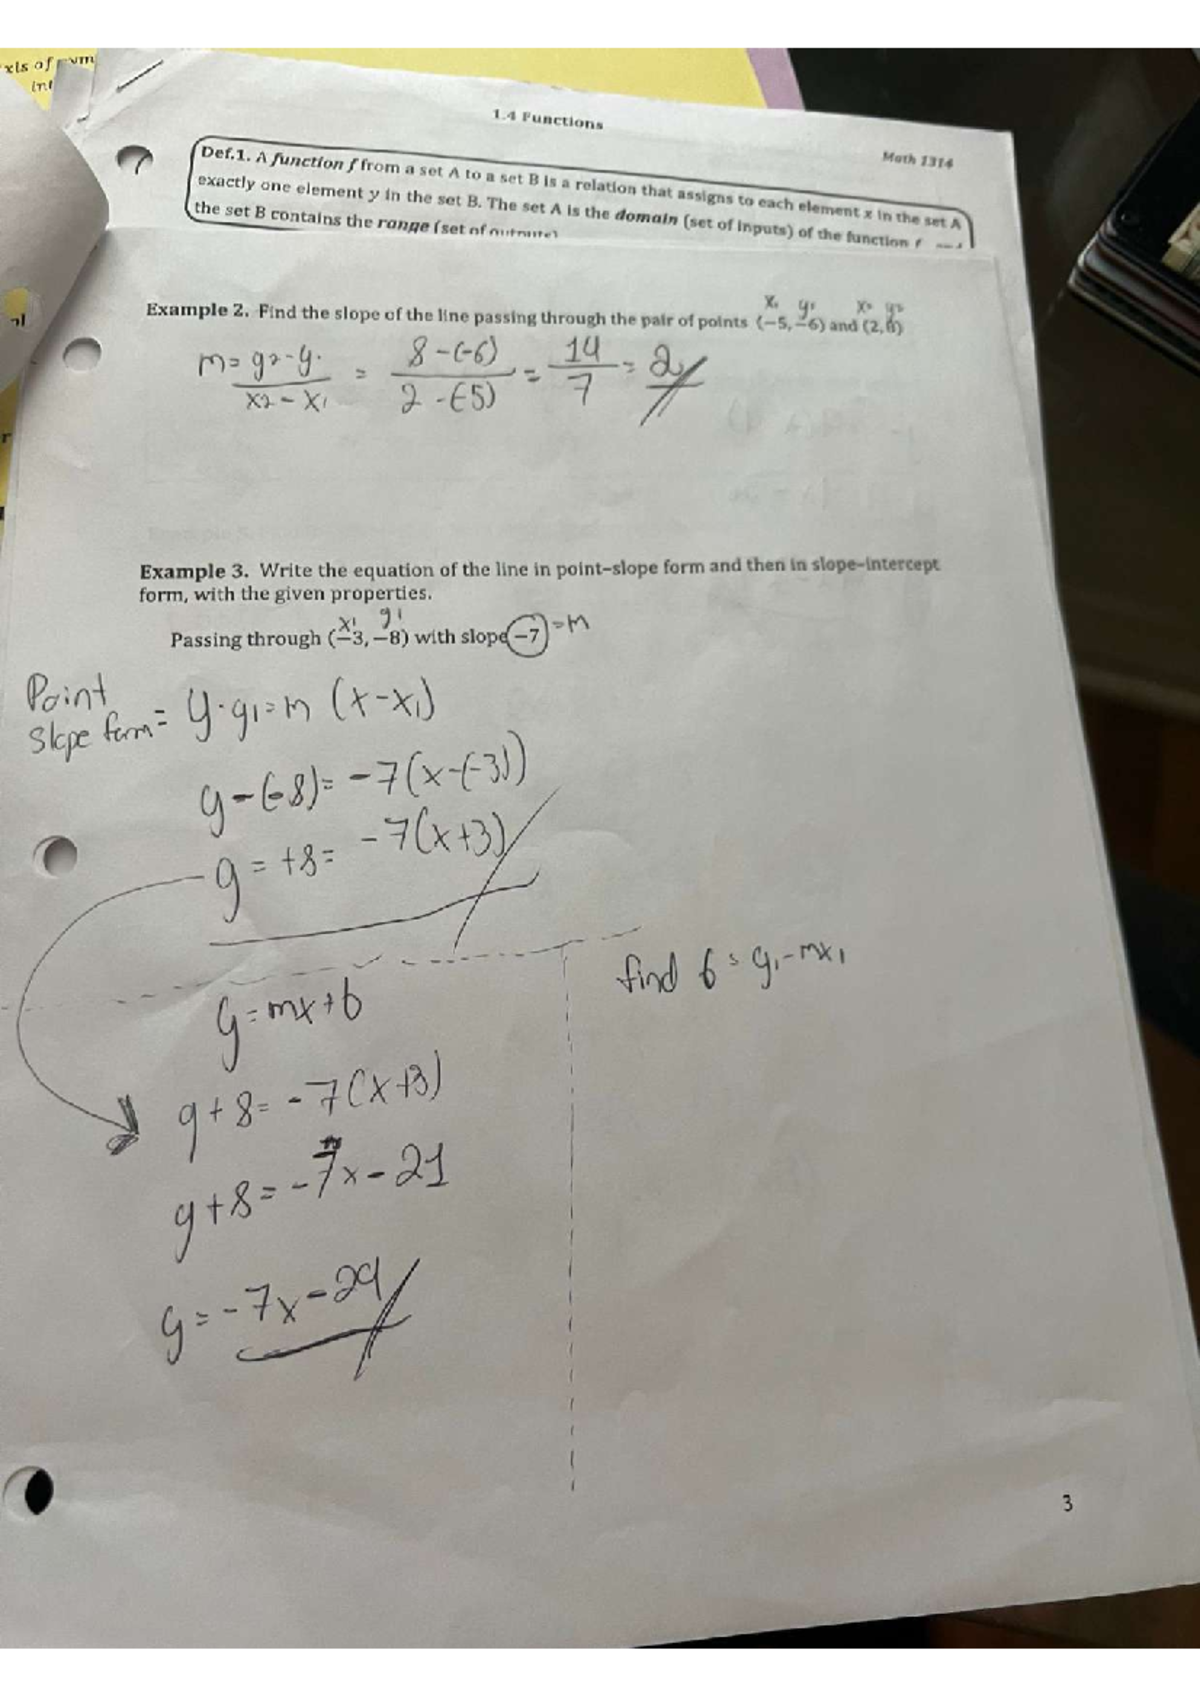 xis of
1.4 Functions
Math 1314
Def.1. A function f from a set A to a set B is a relation that assigns to each element x in the set A
exactly one element y in the set B. The set A is the domain (set of inputs) of the function f
the set B contains the range (set of outputs)
x₁ y₁ x₂ y₂
Example 2. Find the slope of the line passing through the pair of points (−5, −6) and (2, 8)
m = y2 - y1 / x2 - x1 = 8 - (-6) / 2 - (-5) = 14 / 7 = 2
Example 3. Write the equation of the line in point–slope form and then in slope–intercept
form, with the given properties.
x1 y1
Passing through (−3, −8) with slope −7 = m
Point
Slope form = y - y1 = m (x - x1)
y - (-8) = -7(x - (-3))
y = +8 = -7(x+3)
find b = y1 - mx1
y = mx + b
y + 8 = -7(x+3)
y + 8 = -7x - 21
y = -7x - 29
3